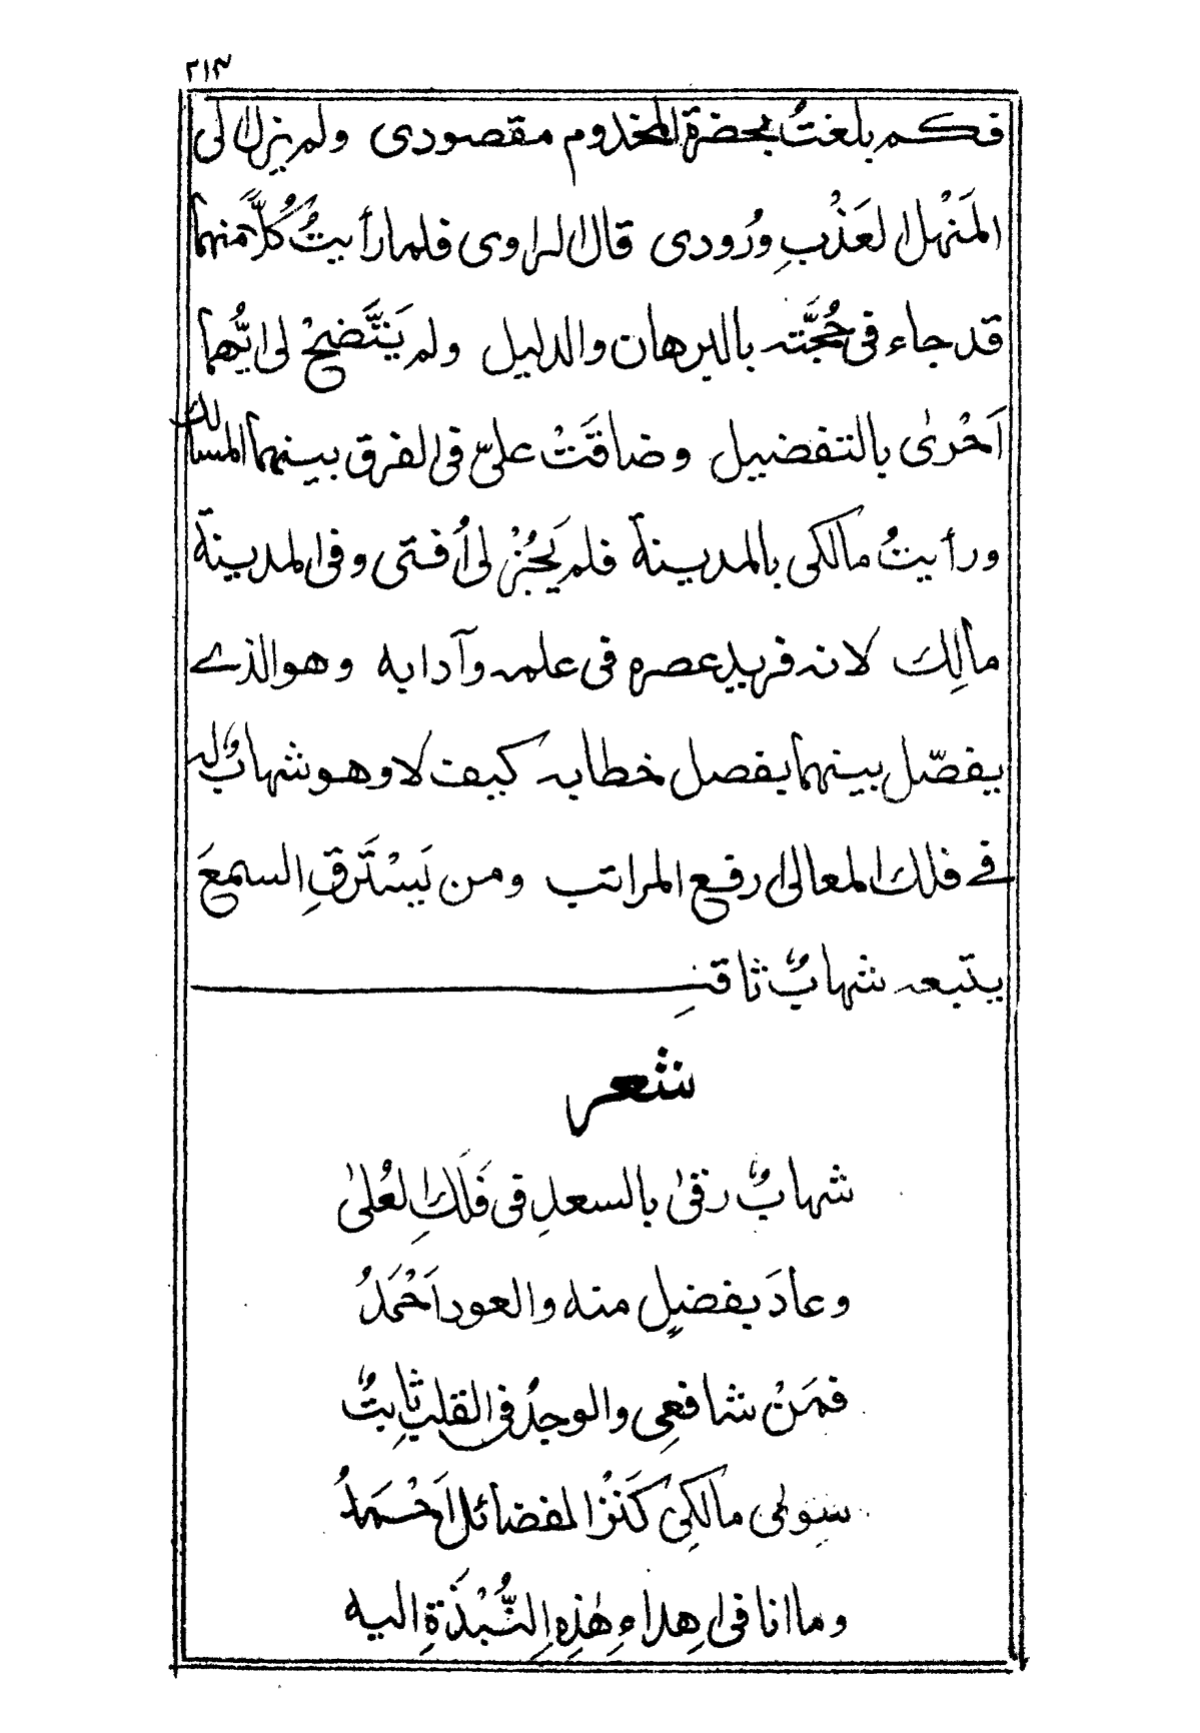 ٢١٣
فكم بلغتُ بحضرة المخدوم مقصودى ولم يزل لى
المَنْهل العَذْبِ وُرُودى قال الراوى فلما رأيتُ كُلًّا منهما
قد جاء فى حُجَّته بالبرهان والدليل ولم يَتَّضحْ لى ايُّهما
اَحْرىٰ بالتفضيل وضاقَتْ علىّ فى الفرق بينهما المسالك
ورأيتُ مالكى بالمدينة فلم يَجُزْ لى أُفتى وفى المدينة
مالِك لانه فريد عصره فى علمه وآدابه وهو الذے
يفصّل بينهما بفصل خطابه كيف لا وهو شهابٌ له
فے فلك المعالى ارفع المراتب ومن يَسْتَرقِ السمعَ
يتبعه شهابٌ ثاقب
شعر
شهابٌ رقىٰ بالسعدِ فى فَلَكِ العُلىٰ
وعادَ بفضلٍ منه والعود اَحْمَدُ
فمَنْ شافعِى والوجدُ فى القلبِ ثابِتٌ
سِوىٰ مالكِىْ كَنْزُ المفضائل اَحْمَدُ
وما انا فى اِهداءِ هٰذِهِ النُّبْذَةِ اليه